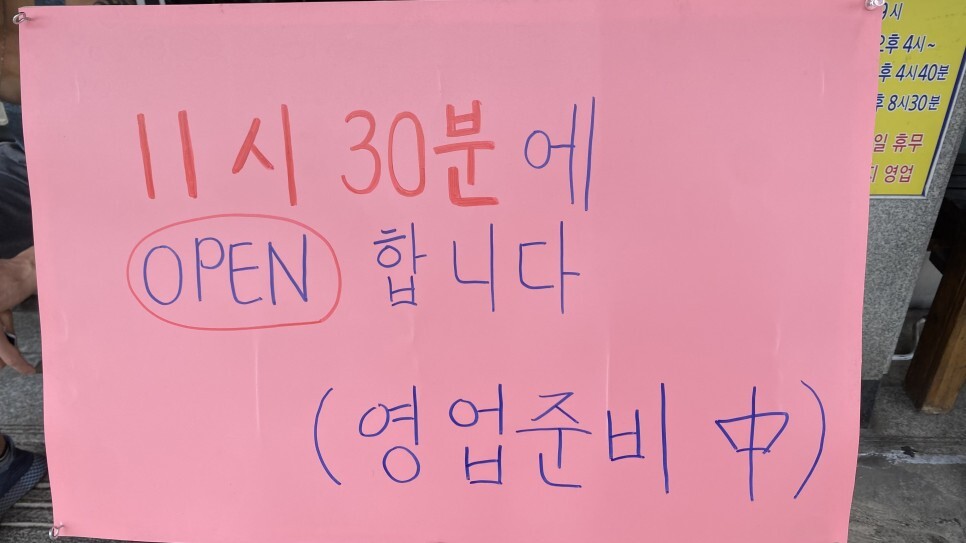 11시 30분에
OPEN 합니다
(영업준비 中)
9시
오후 4시~
후 4시40분
후 8시30분
일 휴무
영업